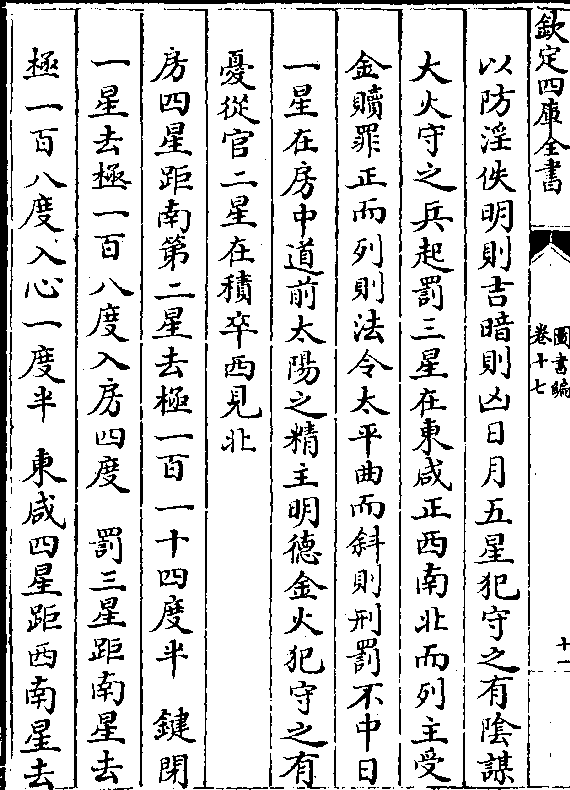 欽定四庫全書
圖書編
卷十七
十一
以防淫佚明則吉暗則凶日月五星犯守之有陰謀
大火守之兵起罰三星在東咸正西南北而列主受
金贖罪正而列則法令太平曲而斜則刑罰不中日
一星在房中道前太陽之精主明德金火犯守之有
憂從官二星在積卒西見北
房四星距南第二星去極一百一十四度半　鍵閉
一星去極一百八度入房四度　罰三星距南星去
極一百八度入心一度半　東咸四星距西南星去